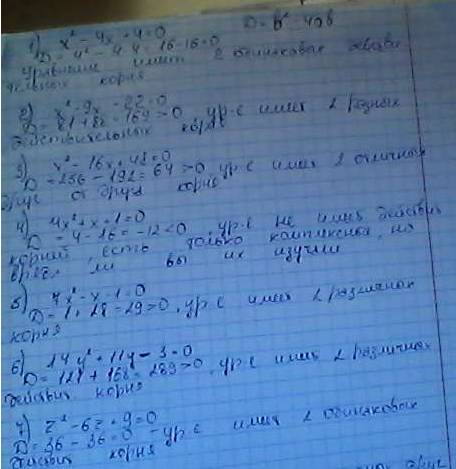 1) x² - 4x + 4 = 0 D = b² - 4ac
D = 4² - 4·4 = 16 - 16 = 0
уравнение имеет 2 одинаковые действи
тельных корня
2) x² - 9x - 22 = 0
D = 81 + 88 = 169 > 0, ур-е имеет 2 разных
действительных корня
3) x² - 16x + 48 = 0
D = 256 - 192 = 64 > 0, ур-е имеет 2 отличных
друг от друга корня
4) 4x² + x + 1 = 0
D = 4 - 16 = -12 < 0, ур-е не имеет действит
корней, есть только комплексные, но
вряд ли вы их изучали
5) 7x² - x - 1 = 0
D = 1 + 28 = 29 > 0, ур-е имеет 2 различных
корня
6) 14y² + 11y - 3 = 0
D = 121 + 168 = 289 > 0, ур-е имеет 2 различных
действит корня
7) z² - 6z + 9 = 0
D = 36 - 36 = 0 - ур-е имеет 2 одинаковых
действит корня